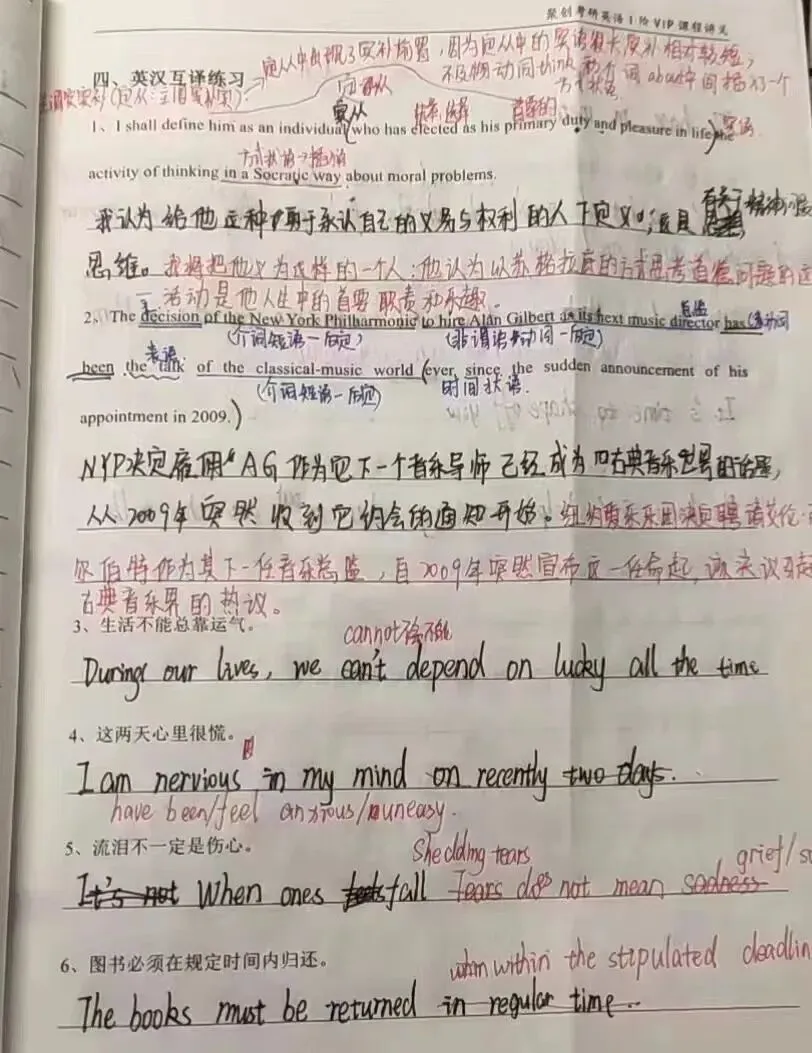 聚创考研英语1阶VIP课程讲义
定从中出现了宾补前置，因为定从中的宾语很长宾补相对较短，
四、英汉互译练习
不及物动词think 和介词about中间插了一个
方式状语
定从
宾从 选择 首要的 宾语
1、I shall define him as an individual (who has elected as his primary duty and pleasure in life) the
方式状语→插入语
activity of thinking in a Socratic way about moral problems.
我认为给他这种勇于承认自己的义务与权利的人下定义。这是 有关于精神问题
思维。我将把他定义为这样的一个人：他认为以苏格拉底的方式思考道德问题的这
一活动是他人生中的首要职责和乐趣。
总监
2、The decision of the New York Philharmonic to hire Alan Gilbert as its next music director has (系动词
(介词短语一后定) (非谓语动词一后定)
表语
been the talk of the classical-music world (ever since the sudden announcement of his
(介词短语一后定) 时间状语
appointment in 2009.)
NYP决定雇佣 AG 作为它下一个音乐导师 已经成为 古典音乐世界的话题,
从 2009年 突然 收到它约会的通知 开始。纽约爱乐乐团决定聘请艾伦·
尔伯特作为其下一任音乐总监，自2009年突然宣布这一任命起，该决议引起
古典音乐界的热议。
3、生活不能总靠运气。
cannot
During our lives, we can't depend on lucky all the time
4、这两天心里很慌。
I am nervious in my mind on recently two days.
have been/feel anxious/uneasy.
5、流泪不一定是伤心。
Shedding tears grief/
It's not When ones fall Tears does not mean sadness
6、图书必须在规定时间内归还。
within the stipulated deadlin
The books must be returned in regular time.